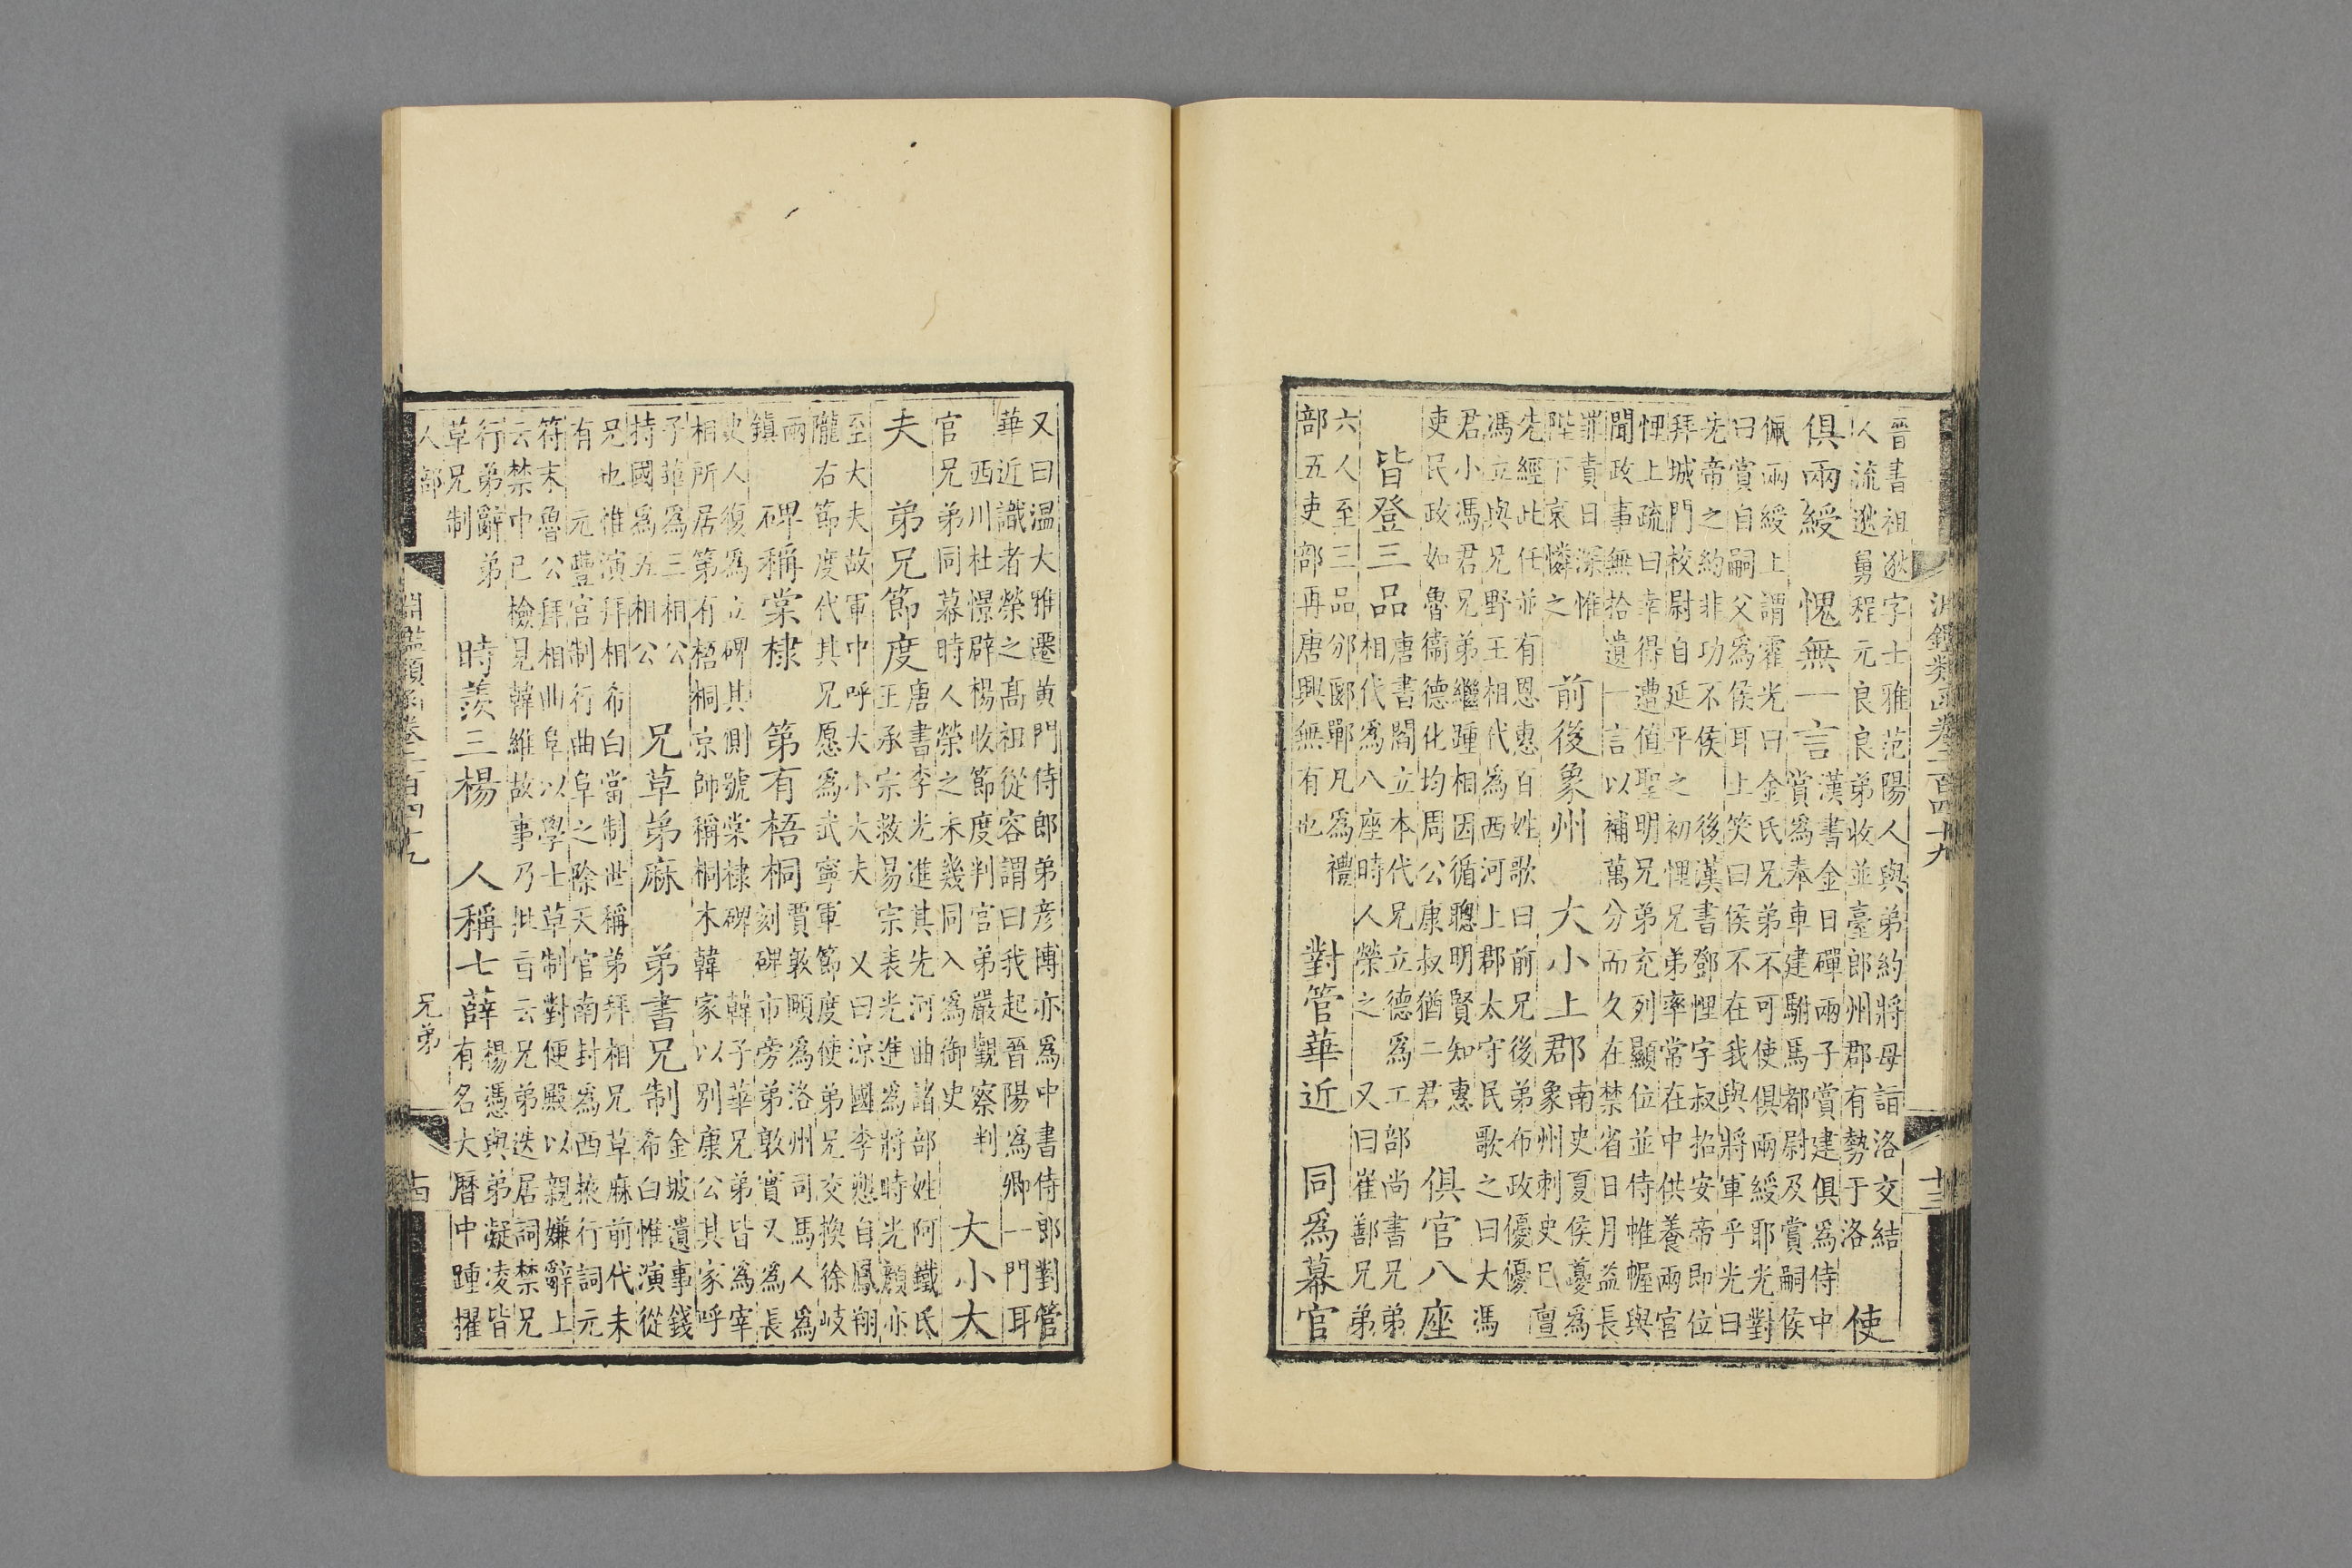 淵鑑類函卷二百四十九
十三
晉書祖逖字士雅范陽人與弟約將母詣洛交結
人流逖舅程元良良弟收並臺郎州郡有勢于洛
使
俱兩綬
愧無一言
漢書金日磾兩子賞建俱爲侍中
賞爲奉車建駙馬都尉及賞嗣侯
佩兩綬上謂霍光曰金氏兄弟不可使俱兩綬耶光對
曰賞自嗣父爲侯耳上笑曰侯不在我與將軍乎光曰
先帝之約非功不侯 後漢書鄧悝字叔招安帝即位
拜城門校尉自延平之初悝兄弟率常在中供養兩宮
悝上疏曰幸得遭值聖明兄弟充列顯位並侍帷幄與
聞政事無拾遺一言以補萬分而久在禁省日月益長
罪責日深惟
陛下哀憐之
前後象州
大小上郡
南史夏侯夔爲
象州刺史已亶
先經此任並有恩惠百姓歌曰前兄後弟布政優優
馮立與兄野王相代爲西河上郡太守民歌之曰大馮
君小馮君兄弟繼踵相因循聰明賢知惠
吏民政如魯衞德化均周公康叔猶二君
俱官八座
皆登三品
唐書閻立本代兄立德爲工部尚書兄弟
相代爲八座時人榮之 又曰崔鄯兄弟
六人至三品邠郾鄲凡爲禮
部五吏部再唐興無有也
對管華近
同爲幕官
又曰温大雅遷黃門侍郎弟彥博亦爲中書侍郎對管
華近識者榮之高祖從容謂曰我起晉陽爲卿一門耳
西川杜憬辟楊收節度判官弟嚴觀察判
官兄弟同幕時人榮之未幾同入爲御史
大小大
夫
弟兄節度
唐書李光進其先河曲諸部姓阿鐵氏
王承宗救易宗表光進爲將時光顏亦
至大夫故軍中呼大小大夫 又曰涼國李愬自鳳翔
隴右節度代其兄愿爲武寧軍節度使弟兄交換徐岐
兩
鎮
碑稱棠棣
第有梧桐
賈敦頤爲洛州司馬人爲
刻碑市旁弟敦實又爲長
史人復爲立碑其側號棠棣碑 韓子華兄弟皆爲宰
相所居第有梧桐京師稱桐木韓家以別康公其家呼
子華爲三相公
持國爲五相公
兄草弟麻
弟書兄制
金坡遺事錢
希白惟演從
兄也惟演拜相希白當制世稱弟拜相兄草麻前代未
有 元豐官制行曲阜之除天官南封爲西掖行詞元
符末魯公拜相曲阜以學士草制對便殿以親嫌辭上
云禁中已檢見韓維故事乃批旨云兄弟迭居詞禁兄
行弟辭弟
草兄制
時羨三楊
人稱七薛
楊憑與弟凝凌皆
有名大曆中踵擢
人部
淵鑑類函卷二百四十九
兄弟
十四